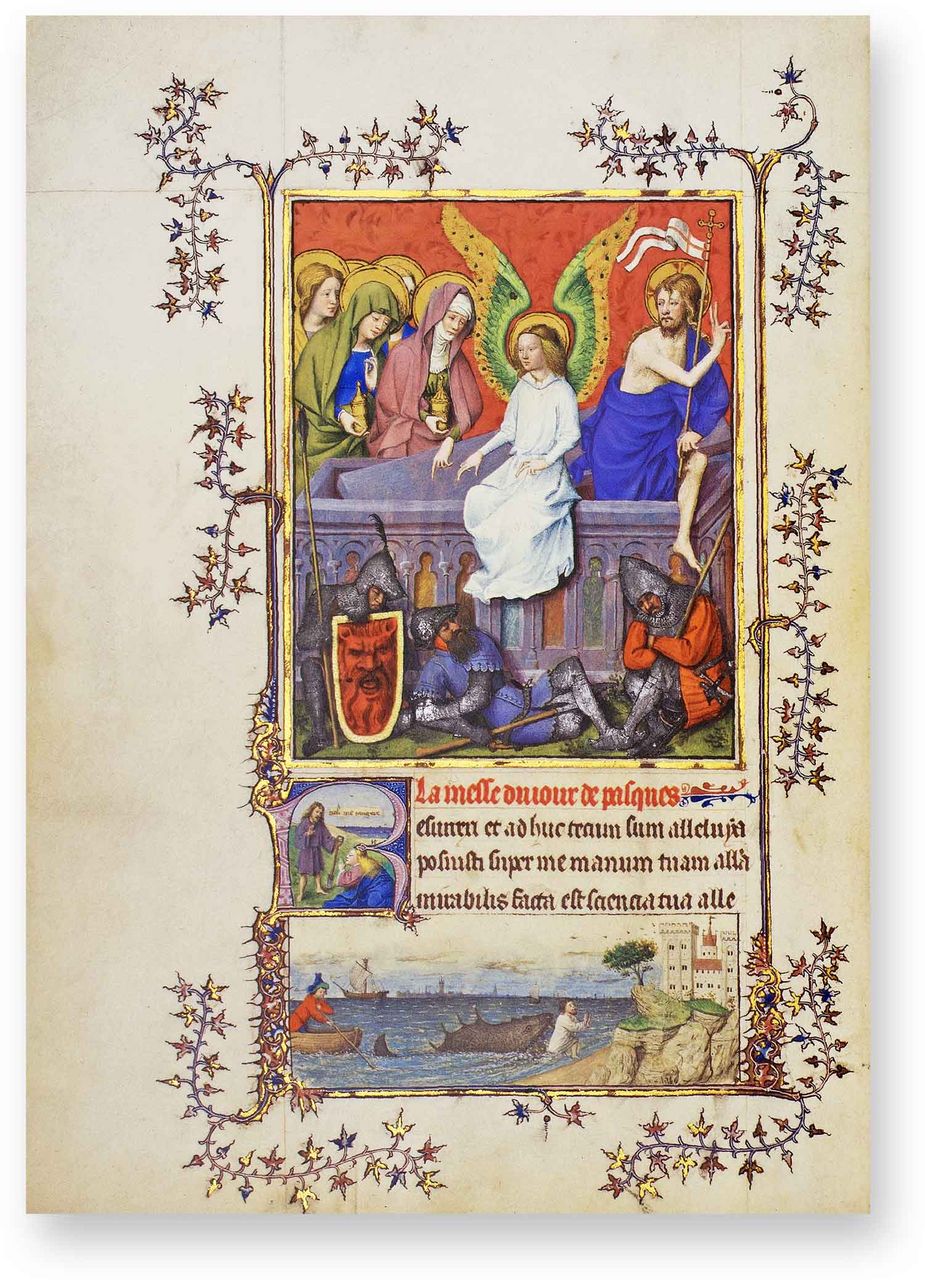 La messe du iour de pasques
Resurrexi et ad huc tecum sum alleluya
posuisti super me manum tuam alla
mirabilis facta est sciencia tua alle